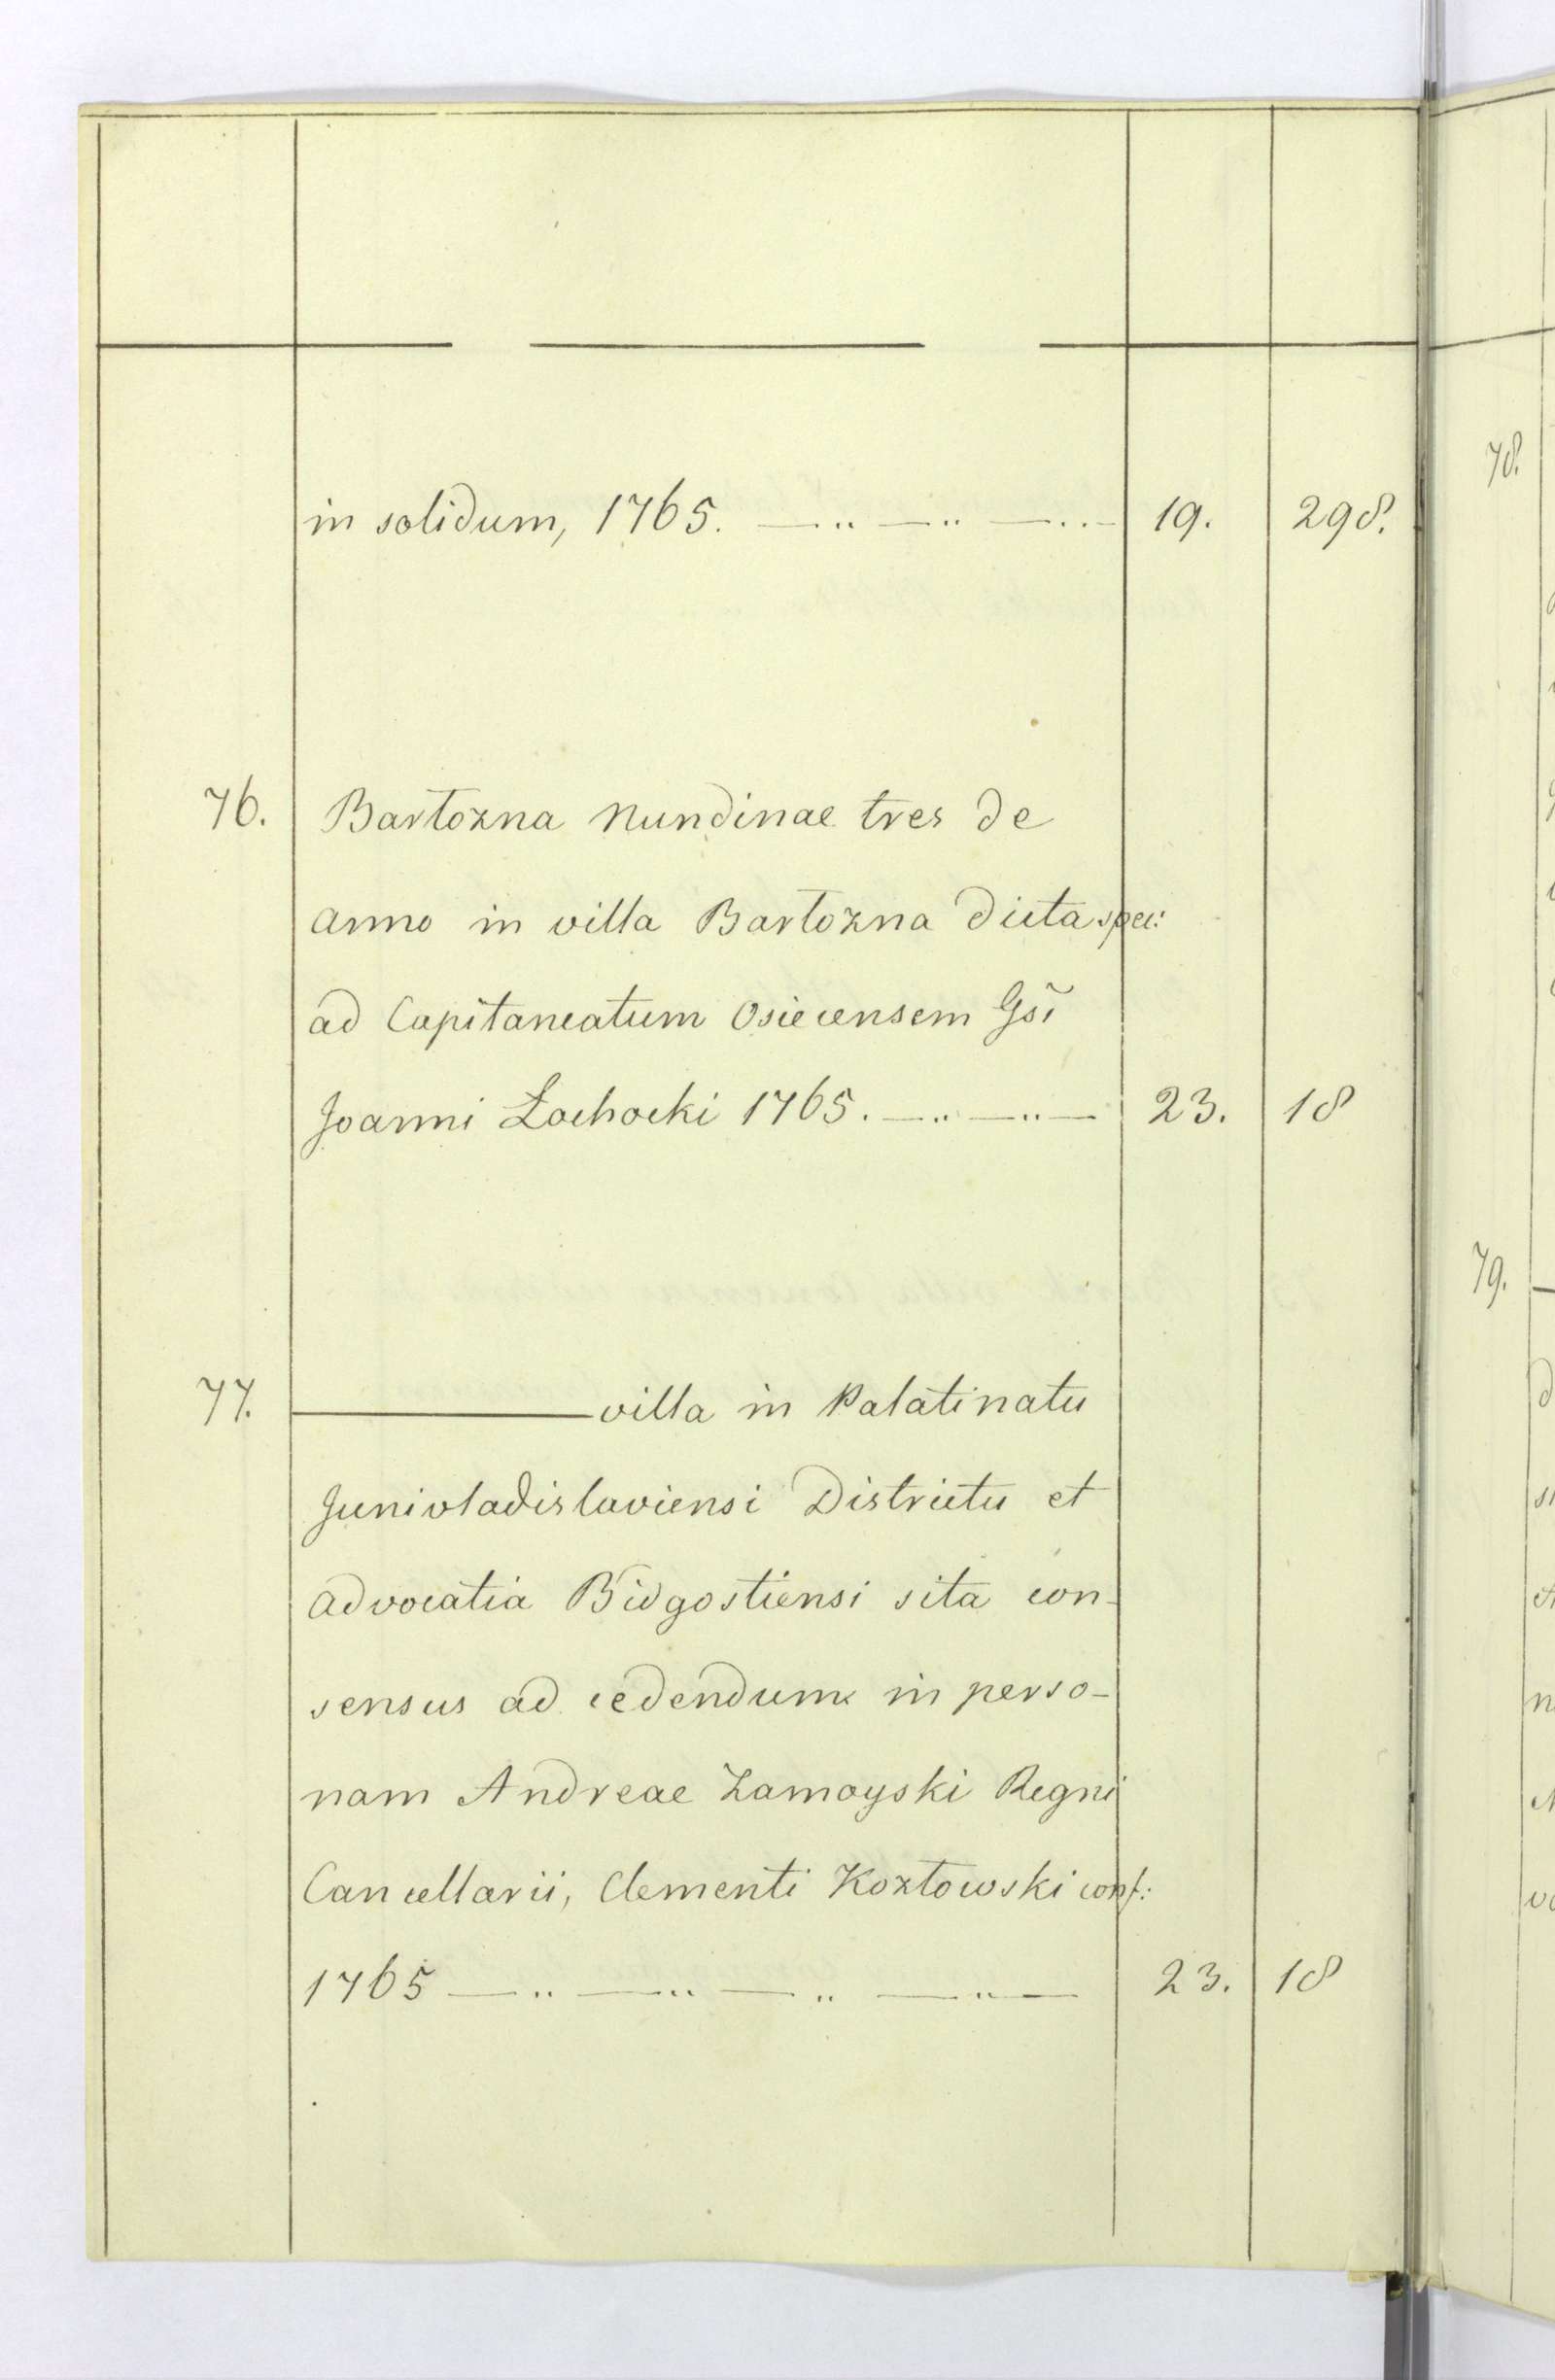 in solidum, 1765. 19. 298.
76. Bartozna Nundinae tres de
anno in villa Bartozna dicta spec:
ad Capitaneatum Osiecensem Gsi
Joanni Łochocki 1765. 23. 18
77. villa in Palatinatu
Junivladislaviensi Districtu et
advocatia Bidgostiensi sita con-
sensus ad cedendum in perso-
nam Andreae Zamoyski Regni
Cancellarii, Clementi Kozłowski conf:
1765 23. 18
78.
79.